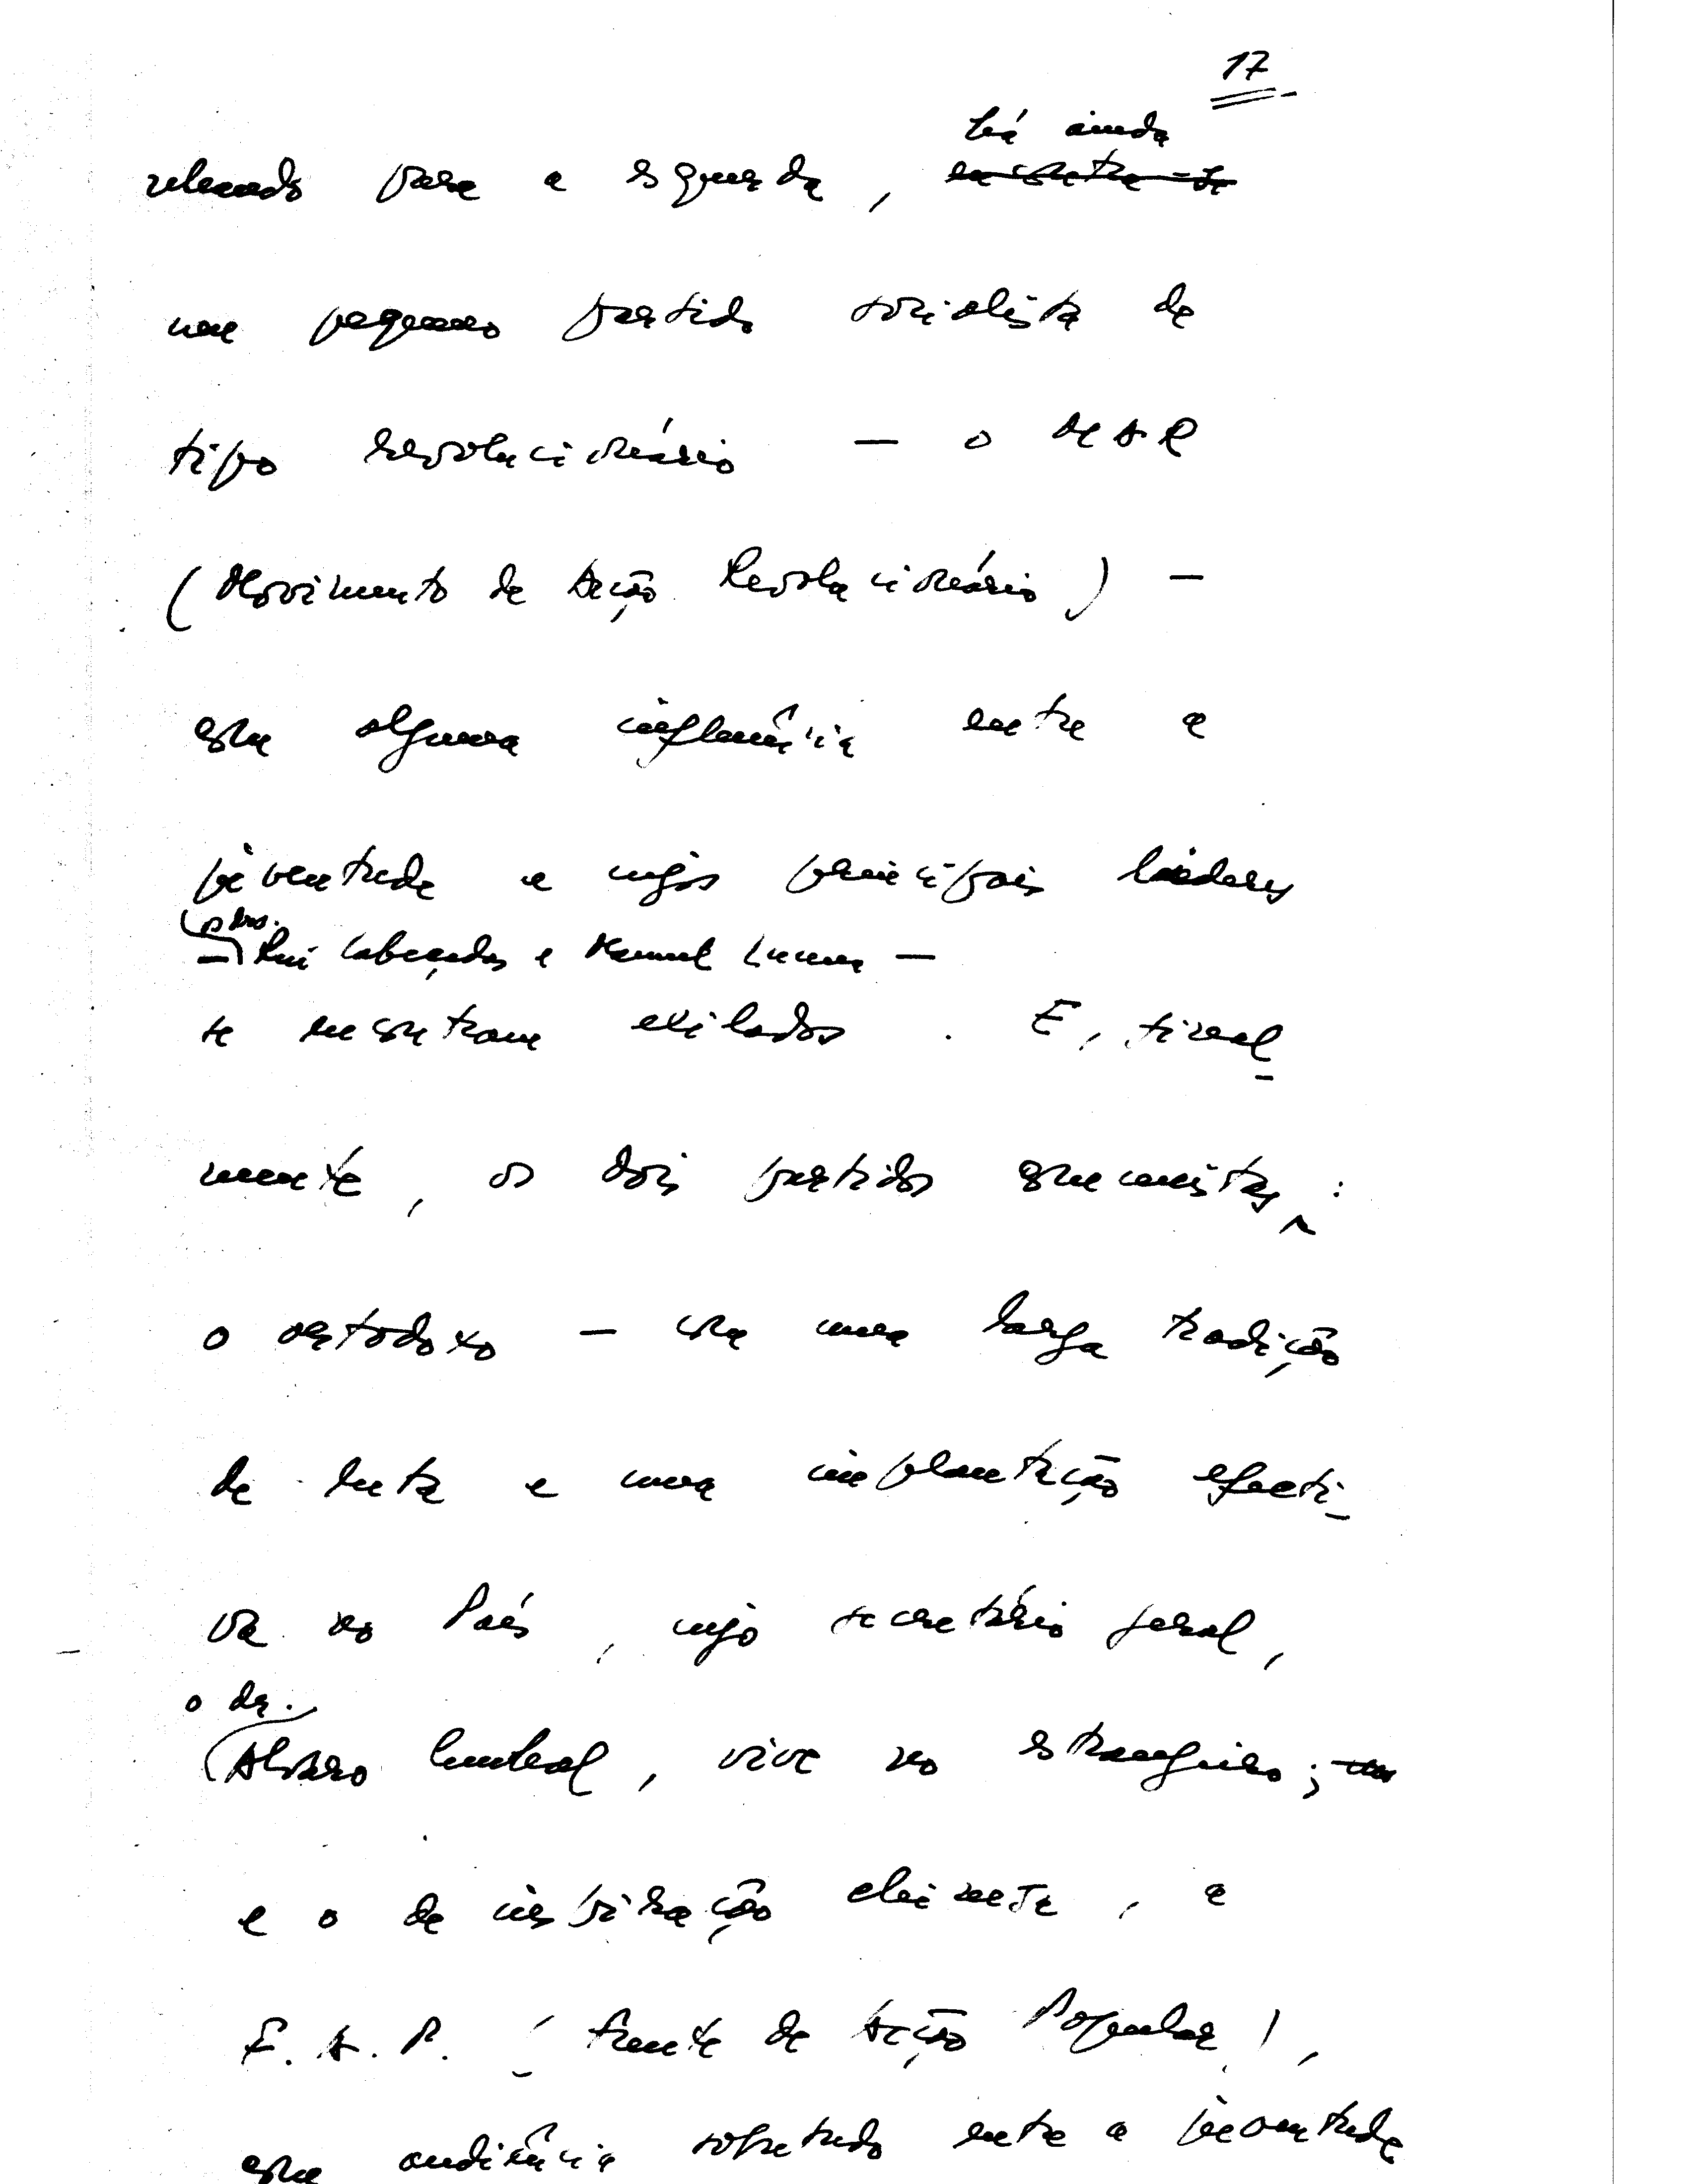 17
há ainda
para a esquerda, encontra-se
um pequeno partido socialista de
tipo revolucionário — o MAR
(Movimento de Acção Revolucionário) —
com alguma influência entre a
juventude e cujos principais líderes
— Rui Cabeçadas e Manuel Lucena —
se encontram exilados. E, final-
mente, os dois partidos comunistas:
o ortodoxo — com uma larga tradição
de luta e uma implantação efecti-
va no País, cujo secretário geral,
o dr.
Álvaro Cunhal, vive no estrangeiro;
e o de inspiração chinesa, a
F.A.P. (Frente de Acção Popular),
com audiência sobretudo entre a juventude